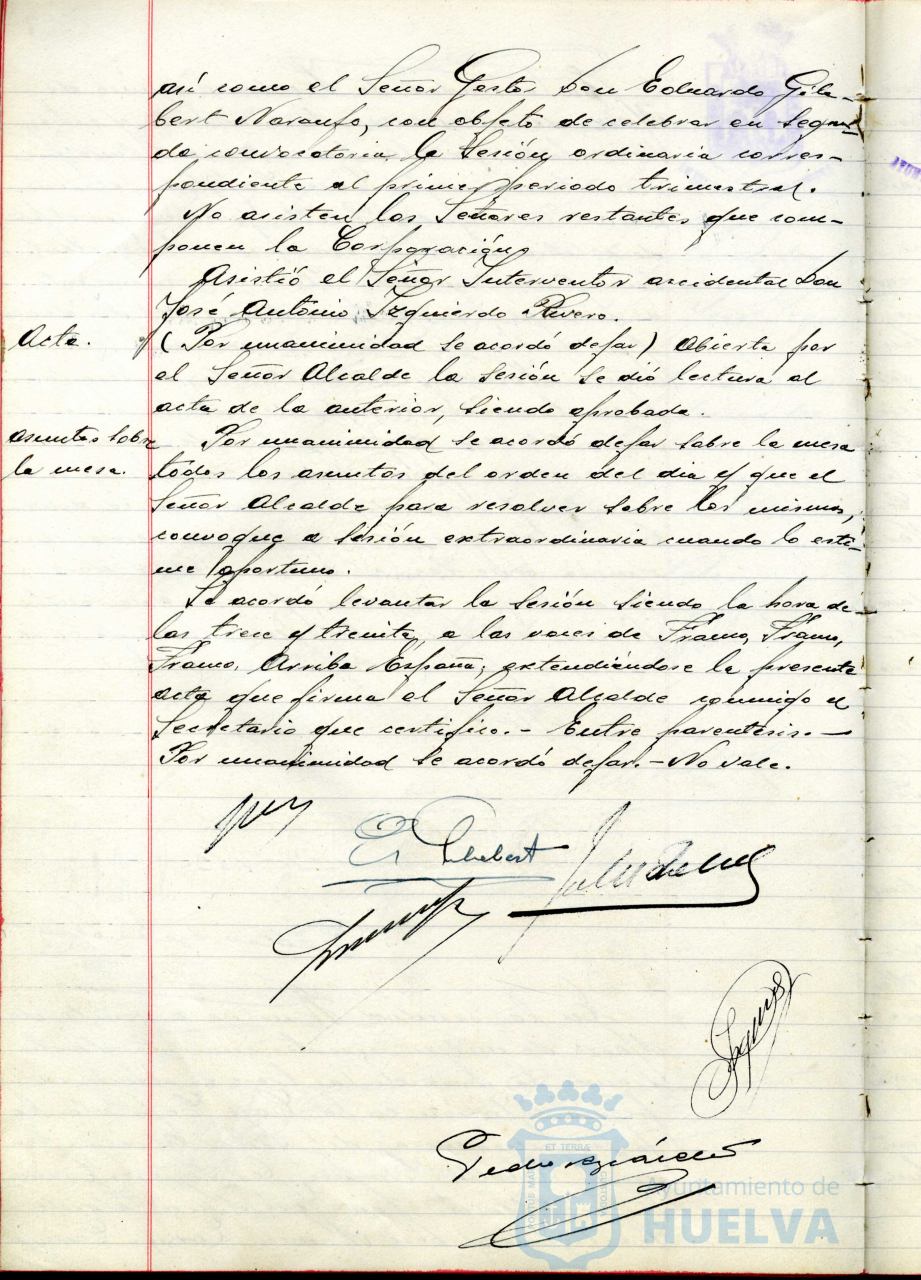 así como el Señor Gestor Don Eduardo Gila-
bert Naranjo, con objeto de celebrar en segun-
da convocatoria la Sesión ordinaria corres-
pondiente al primer periodo trimestral.
No asisten los Señores restantes que com-
ponen la Corporación
Asistió el Señor Interventor accidental Don
José Antonio Izquierdo Rivero.
Acta. (Por unanimidad se acordó dejar) Abierta por
el Señor Alcalde la Sesión se dió lectura al
acta de la anterior, siendo aprobada.
asuntos sobre Por unanimidad se acordó dejar sobre la mesa
la mesa. todos los asuntos del orden del dia y que el
Señor Alcalde para resolver sobre los mismos,
convoque a Sesión extraordinaria cuando lo esti-
me oportuno.
Se acordó levantar la Sesión siendo la hora de
las trece y treinta, a las voces de Franco, Franco,
Franco, Arriba España; extendiéndose la presente
acta que firma el Señor Alcalde conmigo el
Secretario que certifico.- Entre parentesis.-
Por unanimidad se acordó dejar.- No vale.
ET TERRA
Ayuntamiento de
HUELVA